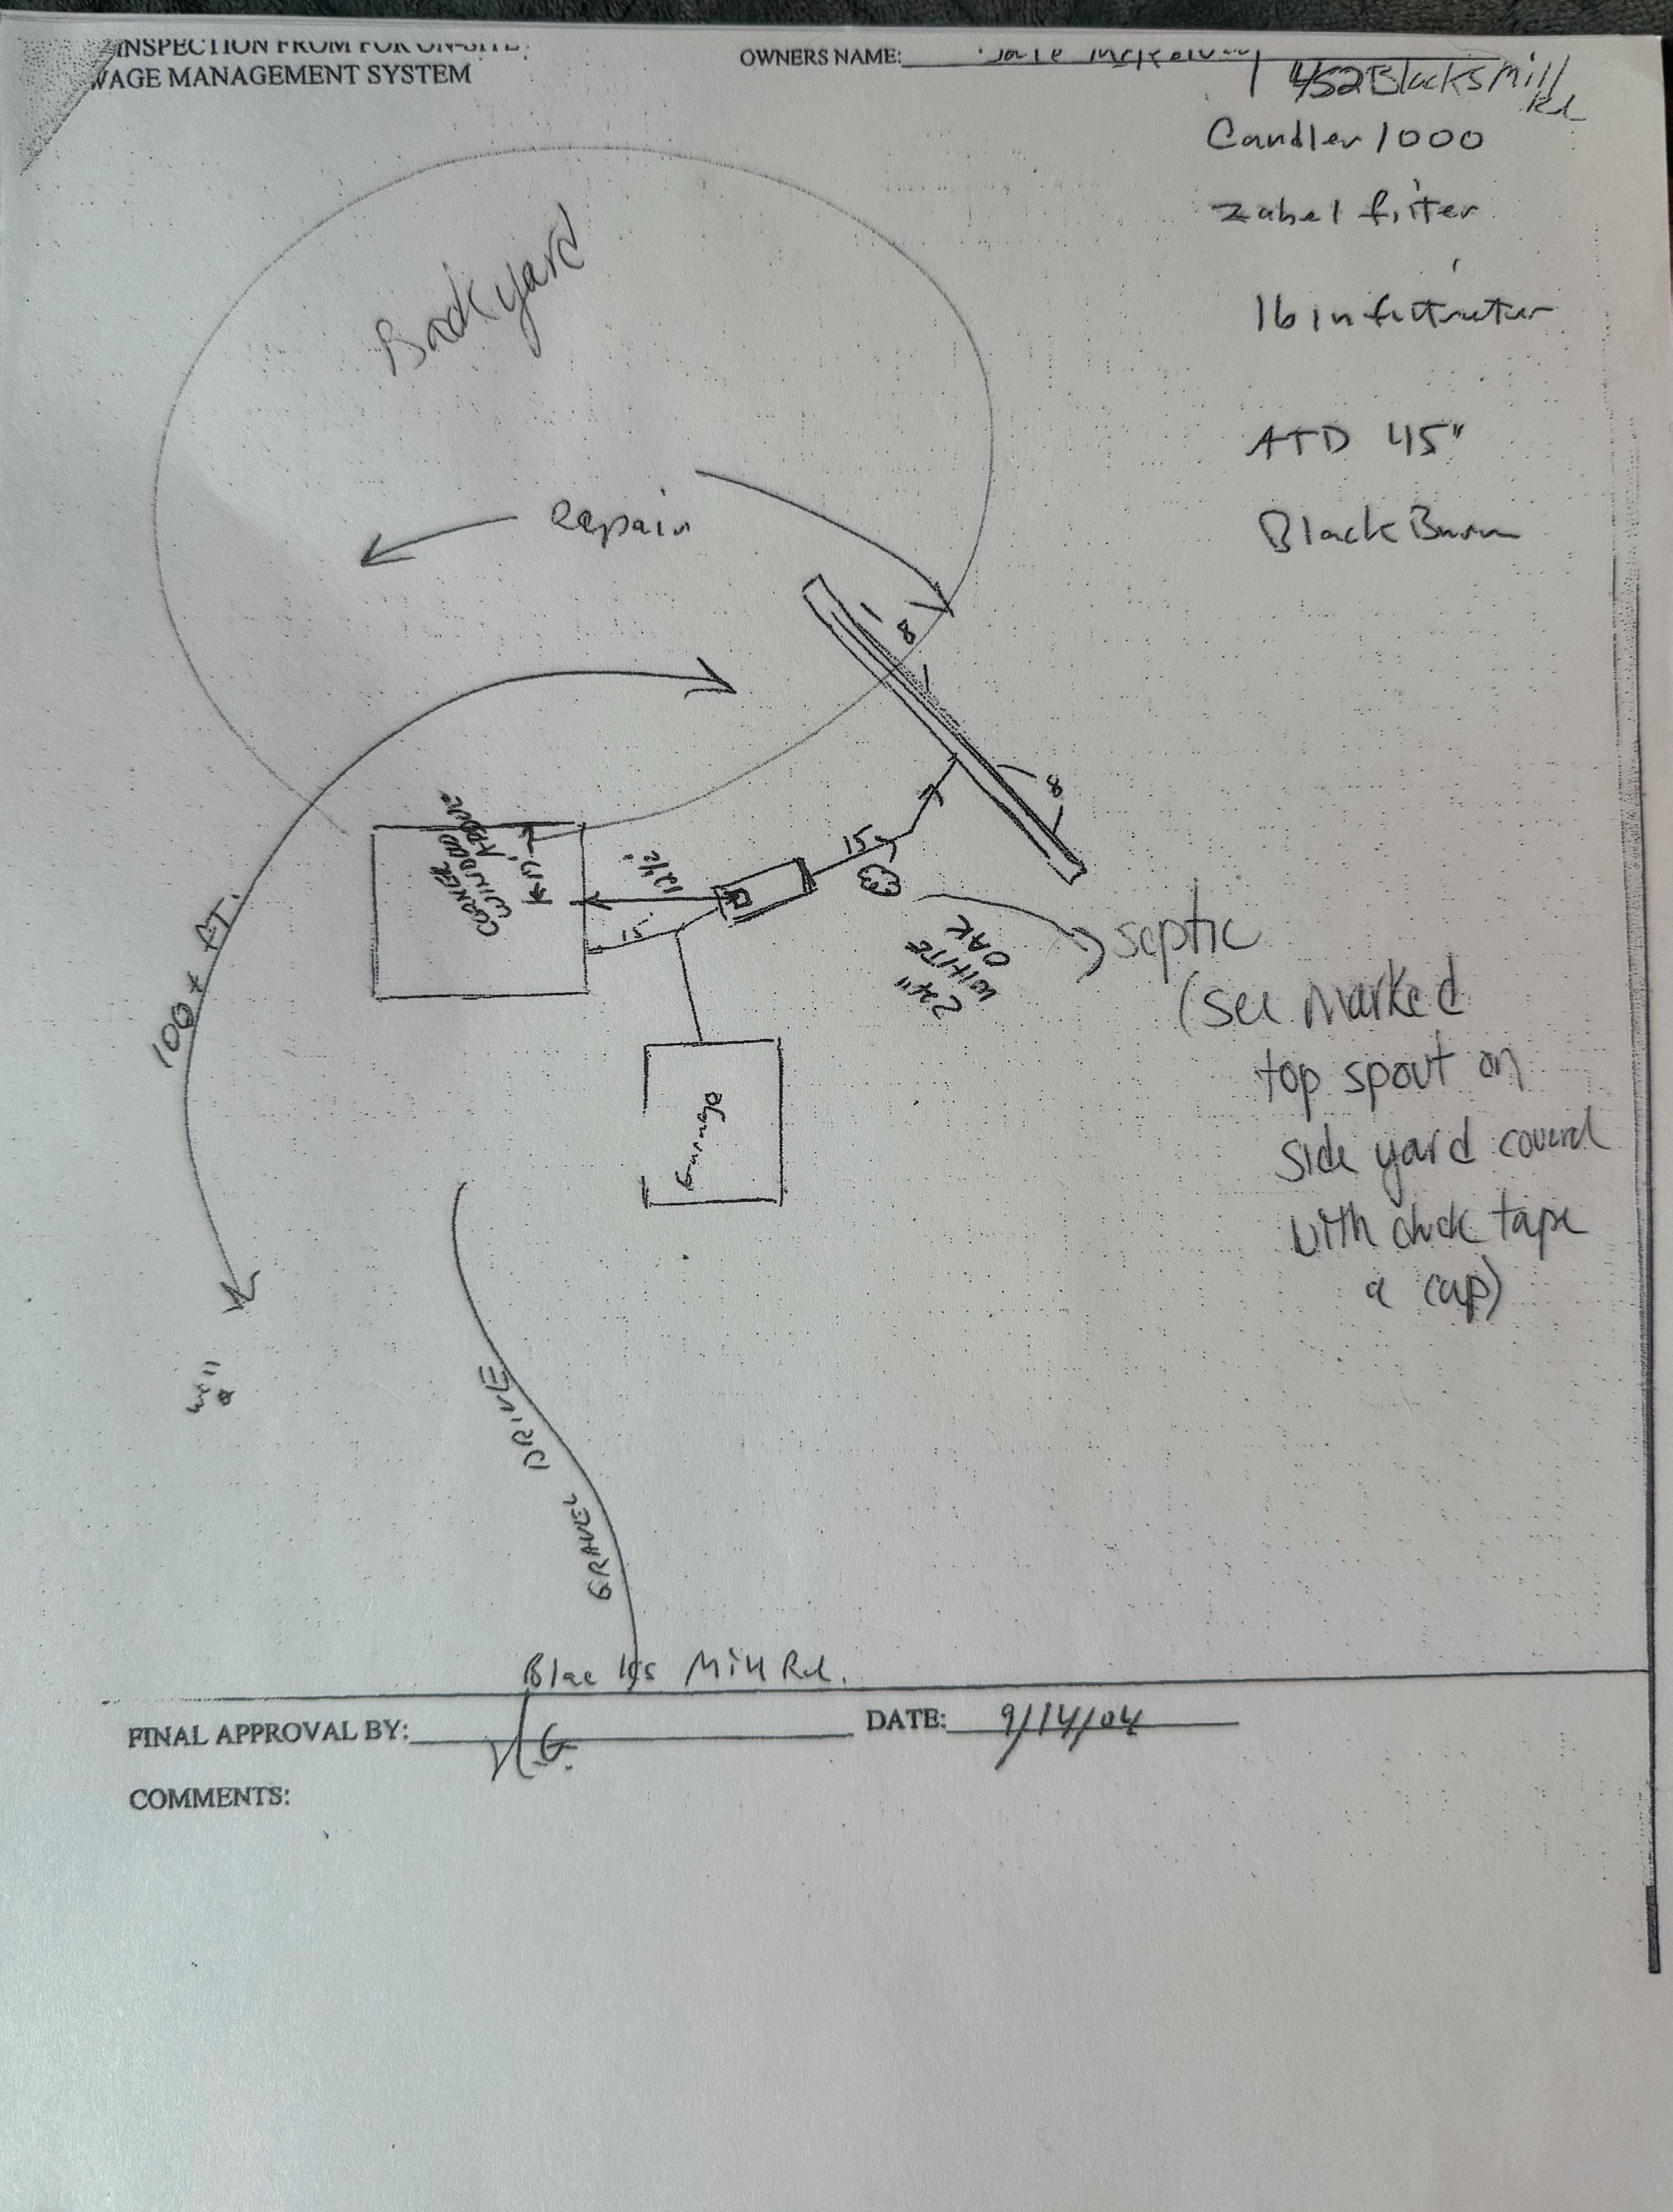 INSPECTION FROM FOR ON-SITE
WAGE MANAGEMENT SYSTEM
OWNERS NAME:
1452 Blacks Mill
Rd
Candler 1000
Zabel filter
16 infiltrator
ATD 45"
BlackBurn
Backyard
Repair
8
8
CORNER
WINDOW
ABOVE
12½'
15'
15
24"
WHITE
OAK
septic
(see marked
top spout on
side yard coverd
with duck tape
a cap)
100+ FT.
Garage
well
GRAVEL DRIVE
Blacks Mill Rd.
FINAL APPROVAL BY: DATE: 9/14/04
COMMENTS: